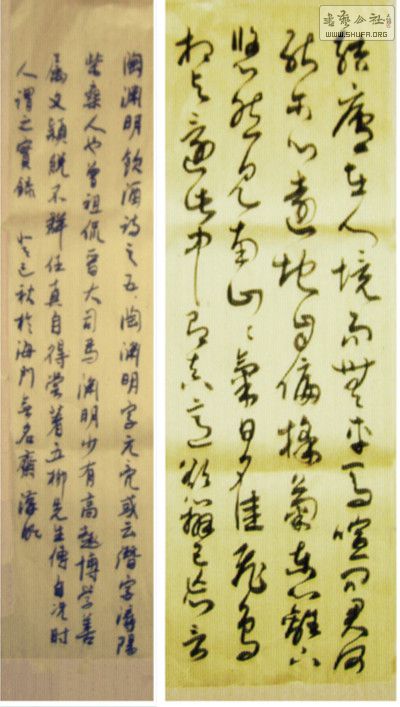 書藝公社
WWW.SHUFA.ORG
結廬在人境而無車馬喧問君何
能尔心遠地自偏採菊東籬下
悠然見南山〻氣日夕佳飛鳥
相与還此中有真意欲辨已忘言
陶渊明飲酒詩之五 陶渊明字元亮或云潛字潯陽
柴桑人也曾祖侃晉大司馬渊明少有高趣博學善
屬文穎脫不群任真自得嘗著五柳先生傳自況時
人謂之實錄 癸巳秋於海門無名齋